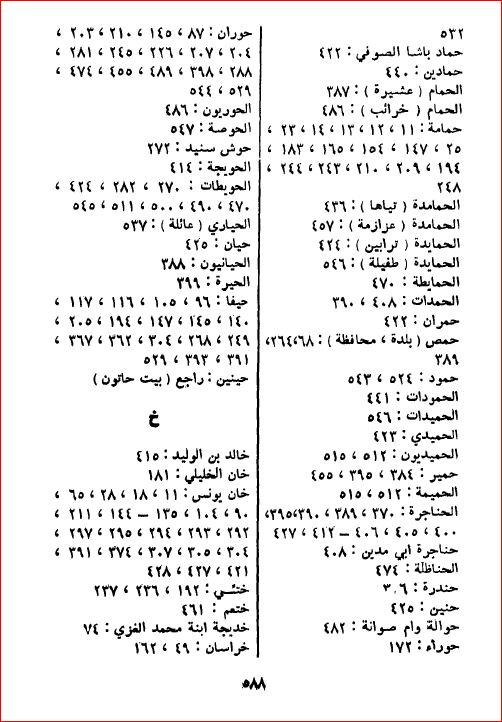 ٥٣٢
حماد باشا الصوفي : ٤٢٢
حمادين : ٤٤٠
الحمام ( عشيرة ) : ٣٨٧
الحمام ( خرائب ) : ٤٨٦
حمامة : ١١ ، ١٢ ، ١٣ ، ١٤ ، ٢٣ ،
٢٥ ، ١٤٧ ، ١٥٤ ، ١٦٥ ، ١٨٣ ،
١٩٤ ، ٢٠٩ ، ٢١٠ ، ٢٤٣ ، ٢٤٤ ،
٢٤٨
الحمامدة ( تياها ) : ٤٣٦
الحمامدة ( عزازمة ) : ٤٥٧
الحمايدة ( ترابين ) : ٤٢٤
الحمايدة ( طفيلة ) : ٥٤٦
الحمايطة : ٤٧٠
الحمدات : ٤٠٨ ، ٣٩٠
حمران : ٤٢٢
حمص ( بلدة ، محافظة ) : ٦٨،٢٦٤،
٣٨٩
حمود : ٥٢٤ ، ٥٤٣
الحمودات : ٤٤١
الحميدات : ٥٤٦
الحميدي : ٤٢٣
الحميديون : ٥١٢ ، ٥١٥
حمير : ٣٨٤ ، ٣٩٥ ، ٤٥٥
الحميمة : ٥١٢ ، ٥١٥
الحناجرة : ٣٧٠ ، ٣٨٩ ، ٣٩٠،٣٩٥،
٤٠٠ ، ٤٠٥ ، ٤٠٦ – ٤١٢ ، ٤٢٧
حناجرة ابي مدين : ٤٠٨
الحناظلة : ٤٧٤
حندرة : ٣٠٦
حنين : ٤٢٥
حوالة وام صوانة : ٤٨٢
حوراء : ١٧٢
حوران : ٨٧ ، ١٤٥ ، ٢١٠ ، ٢٠٣ ،
٢٠٤ ، ٢٠٧ ، ٢٢٦ ، ٢٤٥ ، ٢٨١ ،
٢٨٨ ، ٣٩٨ ، ٤٨٩ ، ٤٥٥ ، ٤٧٤ ،
٥٢٩ ، ٥٤٤
الحوريون : ٤٨٦
الحوصة : ٥٤٧
حوش سنيد : ٢٧٢
الحويجة : ٤١٤
الحويطات : ٢٧٠ ، ٢٨٢ ، ٤٢٤ ،
٤٧٠ ، ٤٩٠ ، ٥٠٠ ، ٥١١ ، ٥٤٥
الحياري ( عائلة ) : ٥٣٧
حيان : ٤٢٥
الحيانيون : ٣٨٨
الحيرة : ٣٩٩
حيفا : ٩٦ ، ١٠٥ ، ١١٦ ، ١١٧ ،
١٤٠ ، ١٤٥ ، ١٤٧ ، ١٩٤ ، ٢٠٥ ،
٢٤٩ ، ٢٦٨ ، ٣٠٤ ، ٣٦٢ ، ٣٦٧ ،
٣٩١ ، ٣٩٣ ، ٥٢٩
حينين : راجع ( بيت حاتون )
خ
خالد بن الوليد : ٤١٥
خان الخليلي : ١٨١
خان يونس : ١١ ، ١٨ ، ٢٨ ، ٦٥ ،
٩٠ ، ١٠٤ ، ١٣٥ – ١٤٤ ، ٢١١ ،
٢٩٢ ، ٢٩٣ ، ٢٩٤ ، ٢٩٥ ، ٢٩٧ ،
٣٠٤ ، ٣٠٥ ، ٣٠٧ ، ٣٧٤ ، ٣٩١ ،
٤٢١ ، ٤٢٧ ، ٤٢٨
ختّسي : ١٩٢ ، ٢٣٦ ، ٢٣٧
ختعم : ٤٦١
خديجة ابنة محمد الغزي : ٧٤
خراسان : ٤٩ ، ١٦٢
٥٨٨